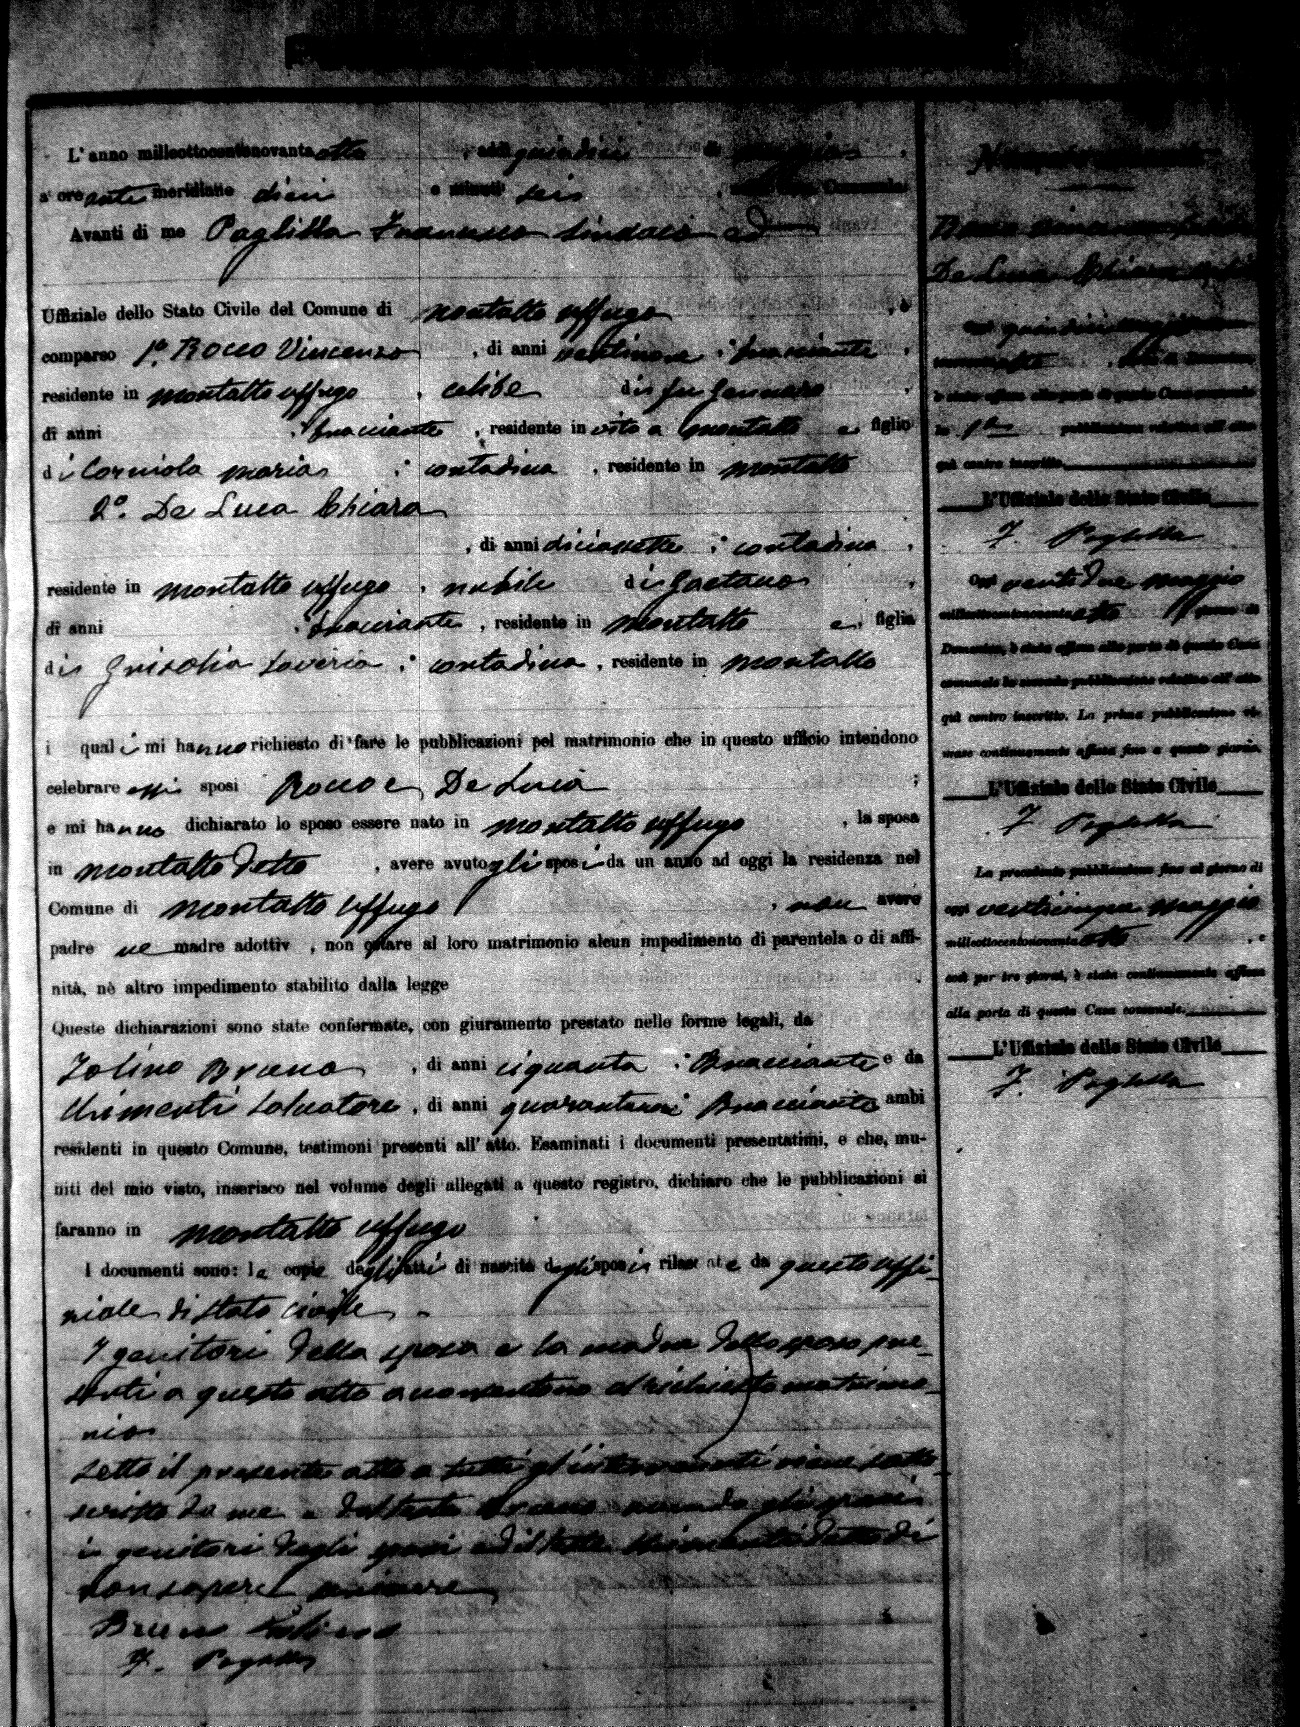 L'anno milleottocentonovanta otto , addì quindici di maggio ,
a ore ante meridiane dieci e minuti sei , nella Casa Comunale.
Avanti di me Paglilla Francesco Sindaco ed
Uffiziale dello Stato Civile del Comune di Montalto Uffugo , è
comparso 1º Rocco Vincenzo , di anni ventinove , bracciante ,
residente in Montalto Uffugo , celibe di fu Gennaro ,
di anni , bracciante , residente in vita a Montalto e , figlio
di Corniola Maria , contadina , residente in Montalto
2º. De Luca Chiara
, di anni diciassette , contadina ,
residente in Montalto Uffugo , nubile di Gaetano ,
di anni , bracciante , residente in Montalto e , figlia
di Grisolia Saveria , contadina , residente in Montalto
i quali mi hanno richiesto di fare le pubblicazioni pel matrimonio che in questo ufficio intendono
celebrare essi sposi Rocco e De Luca ;
e mi hanno dichiarato lo sposo essere nato in Montalto Uffugo , la sposa
in Montalto detto , avere avuto gli sposi da un anno ad oggi la residenza nel
Comune di Montalto Uffugo , non avere
padre ne madre adottiv , non ostare al loro matrimonio alcun impedimento di parentela o di affi-
nità, nè altro impedimento stabilito dalla legge .
Queste dichiarazioni sono state confermate, con giuramento prestato nelle forme legali, da
Iolino Bruno , di anni ciquanta , Bracciante e da
Chimenti Salvatore , di anni Bracciante ambi
residenti in questo Comune, testimoni presenti all'atto. Esaminati i documenti presentatimi, e che, mu-
niti del mio visto, inserisco nel volume degli allegati a questo registro, dichiaro che le pubblicazioni si
faranno in Montalto Uffugo
I documenti sono: le copie degli atti di nascita degli sposi rilasciate da questo uffi-
ziale di stato civile .
I genitori della sposa e la madre dello sposo pre-
senti a questo atto acconsentono al richiesto matrimo-
nio
Letto il presente atto a tutti gl'intervenuti viene sotto-
scritto da me e dal teste Bruno avendo gli sposi
i genitori degli sposi ed il teste Chimenti detto di
non sapere scrivere
Bruno Iolino
F. Paglilla
Numero
Rocco Vincenzo
De Luca Chiara
Oggi quindici maggio
otto
è stata affissa alla porta di questa Casa comunale
la 1ª pubblicazione relativa all'atto
quì contro inscritto.
L'Uffiziale dello Stato Civile
F. Paglilla
Oggi ventidue maggio
milleottocentonovanta otto giorno di
Domenica, è stata affissa alla porta di questa Casa
comunale la seconda pubblicazione relativa all'atto
quì contro inscritto. La prima pubblicazione ri-
mase continuamente affissa fino a questo giorno.
L'Uffiziale dello Stato Civile
F. Paglilla
La precedente pubblicazione fino al giorno di
oggi venticinque maggio
milleottocentonovanta otto , e
così per tre giorni, è stata continuamente affissa
alla porta di questa Casa comunale.
L'Uffiziale dello Stato Civile
F. Paglilla